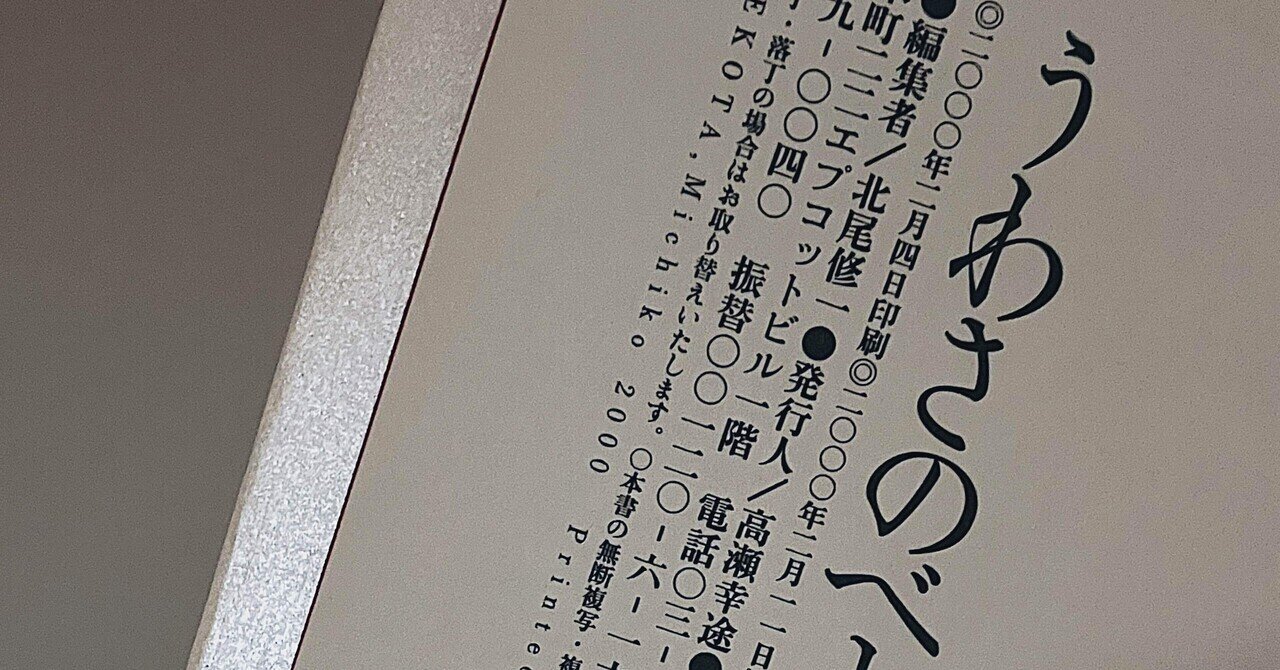 うわさのべ
◎二〇〇〇年二月四日印刷◎二〇〇〇年二月一一日
●編集者/北尾修一●発行人/高瀬幸途●
町二二エプコットビル一階 電話〇三-
九-〇〇四〇 振替〇〇一二〇-六-一
・落丁の場合はお取り替えいたします。〇本書の無断複写・複
EKOTA,Michiko 2000 Printe